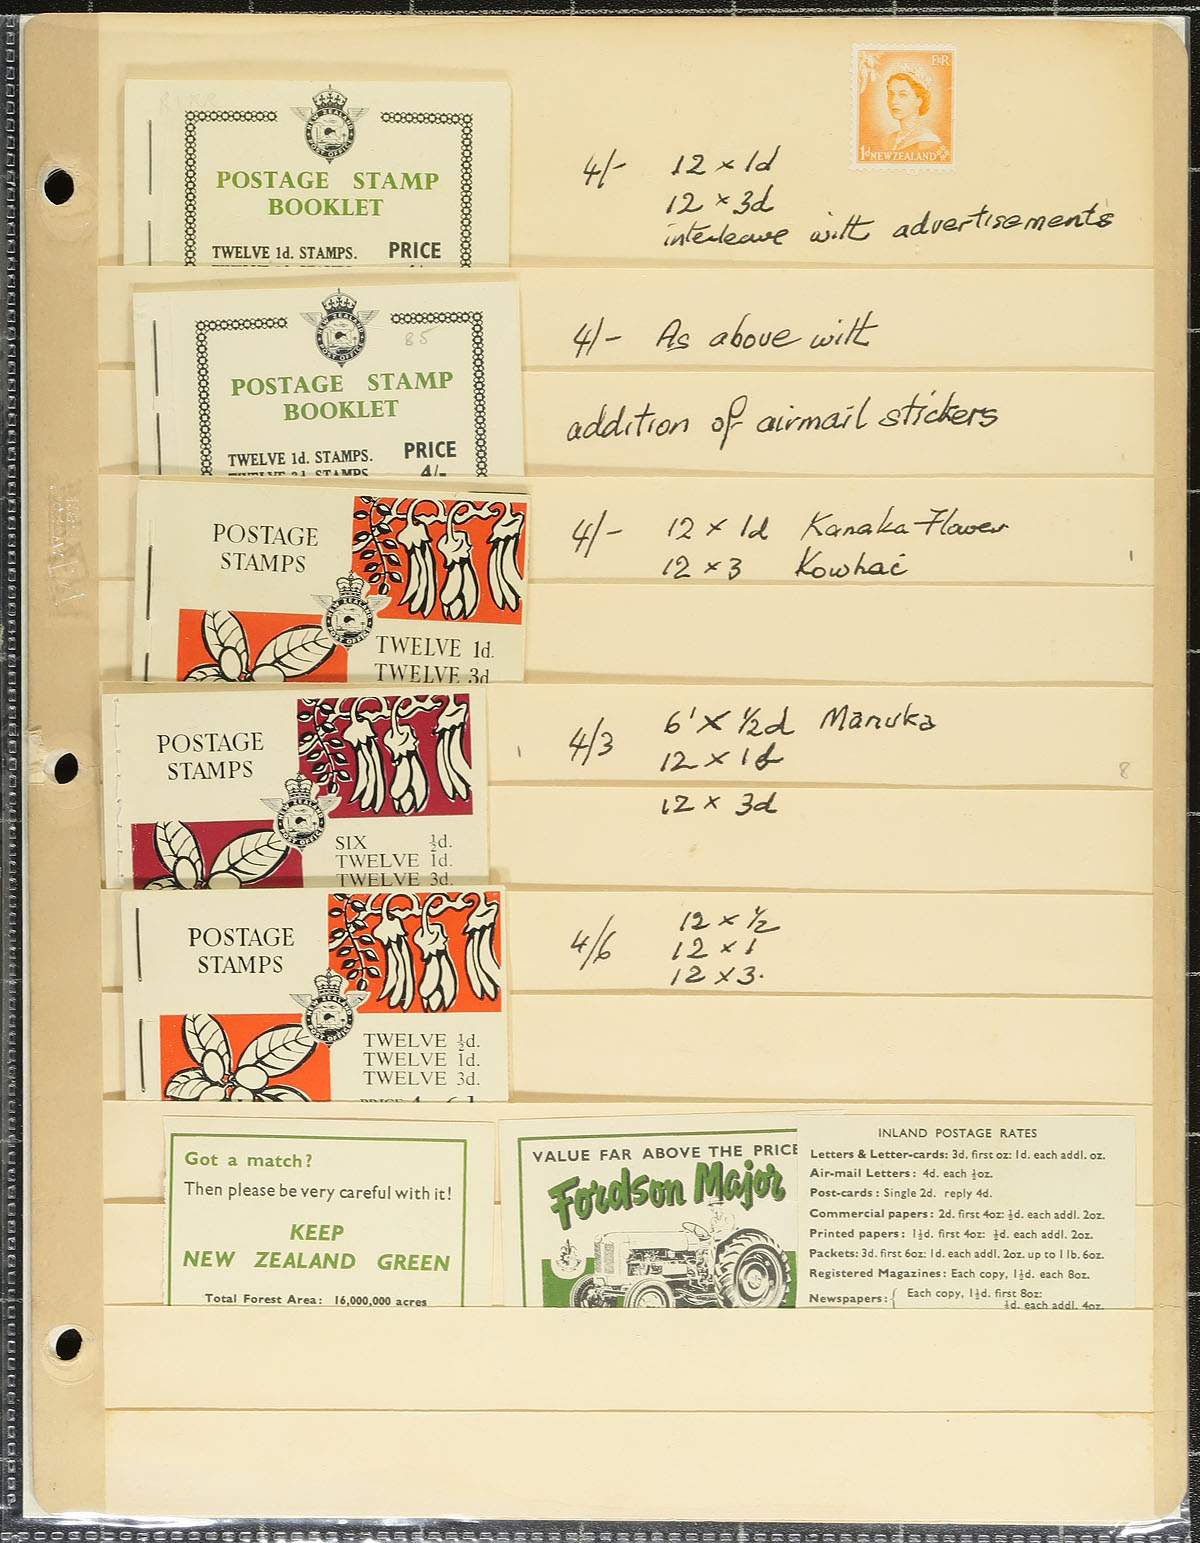 NEW ZEALAND
POST OFFICE
POSTAGE STAMP
BOOKLET
TWELVE 1d. STAMPS.
PRICE
E II R
1d NEW ZEALAND
4/- 12 x 1d
12 x 3d
interleave with advertisements
NEW ZEALAND
POST OFFICE
B5
POSTAGE STAMP
BOOKLET
TWELVE 1d. STAMPS.
PRICE
TWELVE 3d. STAMPS
4/-
4/- As above with
addition of airmail stickers
POSTAGE
STAMPS
NEW ZEALAND
POST OFFICE
TWELVE 1d.
TWELVE 3d
4/- 12 x 1d Kanaka Flower
12 x 3 Kowhai
POSTAGE
STAMPS
NEW ZEALAND
POST OFFICE
SIX ½d.
TWELVE 1d.
TWELVE 3d.
4/3 6 x ½d Manuka
12 x 1d
12 x 3d
8
POSTAGE
STAMPS
NEW ZEALAND
POST OFFICE
TWELVE ½d.
TWELVE 1d.
TWELVE 3d.
4/6 12 x ½
12 x 1
12 x 3.
Got a match?
Then please be very careful with it!
KEEP
NEW ZEALAND GREEN
Total Forest Area: 16,000,000 acres
VALUE FAR ABOVE THE PRICE
Fordson Major
INLAND POSTAGE RATES
Letters & Letter-cards: 3d. first oz: 1d. each addl. oz.
Air-mail Letters: 4d. each ½oz.
Post-cards: Single 2d. reply 4d.
Commercial papers: 2d. first 4oz: ½d. each addl. 2oz.
Printed papers: 1½d. first 4oz: ½d. each addl. 2oz.
Packets: 3d. first 6oz: 1d. each addl. 2oz. up to 1 lb. 6oz.
Registered Magazines: Each copy, 1½d. each 8oz.
Newspapers: { Each copy, 1½d. first 8oz:
½d. each addl. 4oz.